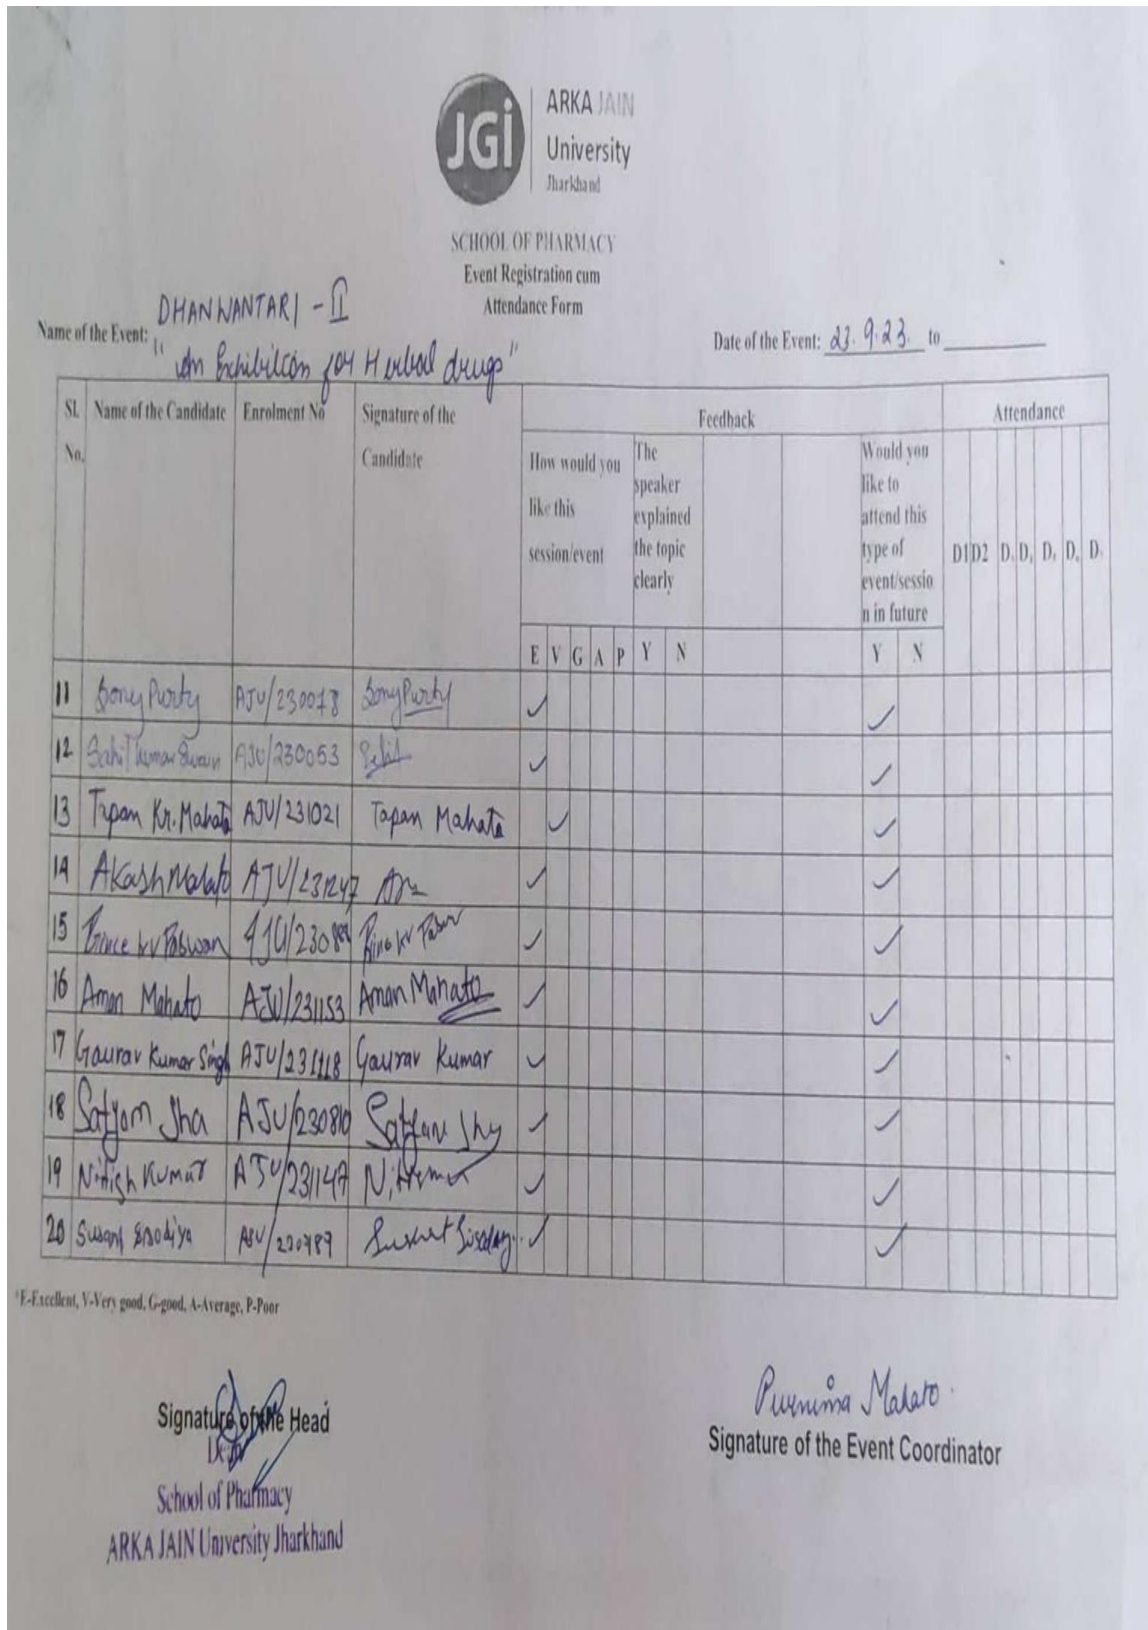 JGi
ARKA JAIN
University
Jharkhand
SCHOOL OF PHARMACY
Event Registration cum
Attendance Form
Name of the Event: DHANWANTARI - II
"An Exhibition for Herbal drugs"
Date of the Event: 23.9.23 to
Sl. No. Name of the Candidate Enrolment No Signature of the Candidate Feedback Attendance
How would you like this session/event
The speaker explained the topic clearly
Would you like to attend this type of event/session in future
D1 D2 D. D. D. D. D.
E V G A P Y N Y N
11 Sony Purty AJU/230078 Sony Purty ✓ ✓
12 Kumar AJU/230053 ✓ ✓
13 Tapan Kr. Mahato AJU/231021 Tapan Mahato ✓ ✓
14 Akash Mahato AJU/231247 ✓ ✓
15 Prince kr Paswan ✓ ✓
16 Aman Mahato AJU/231153 Aman Mahato ✓ ✓
17 Gaurav Kumar Singh AJU/231118 Gaurav Kumar ✓ ✓
18 Satyam Jha AJU/230810 Satyam Jha ✓ ✓
19 Nitish Kumar AJU/231147 ✓ ✓
20 ✓ ✓
*E-Excellent, V-Very good, G-good, A-Average, P-Poor
Signature of the Head
Dean
School of Pharmacy
ARKA JAIN University Jharkhand
Purnima Mahato
Signature of the Event Coordinator